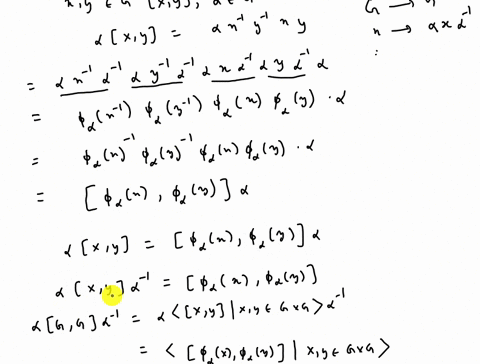 x, y ∈ G [x,y], α ∈ G
α [x,y] = α x⁻¹ y⁻¹ x y
G →
x → α x α⁻¹
:
= α x⁻¹ α⁻¹ α y⁻¹ α⁻¹ α x α⁻¹ α y α⁻¹ α
= ϕα(x⁻¹) ϕα(y⁻¹) ϕα(x) ϕα(y) · α
= ϕα(x)⁻¹ ϕα(y)⁻¹ ϕα(x) ϕα(y) · α
= [ϕα(x), ϕα(y)] α
α [x,y] = [ϕα(x), ϕα(y)] α
α [x,y] α⁻¹ = [ϕα(x), ϕα(y)]
α [G,G] α⁻¹ = α < [x,y] | x,y ∈ G×G > α⁻¹
= < [ϕα(x), ϕα(y)] | x,y ∈ G×G >